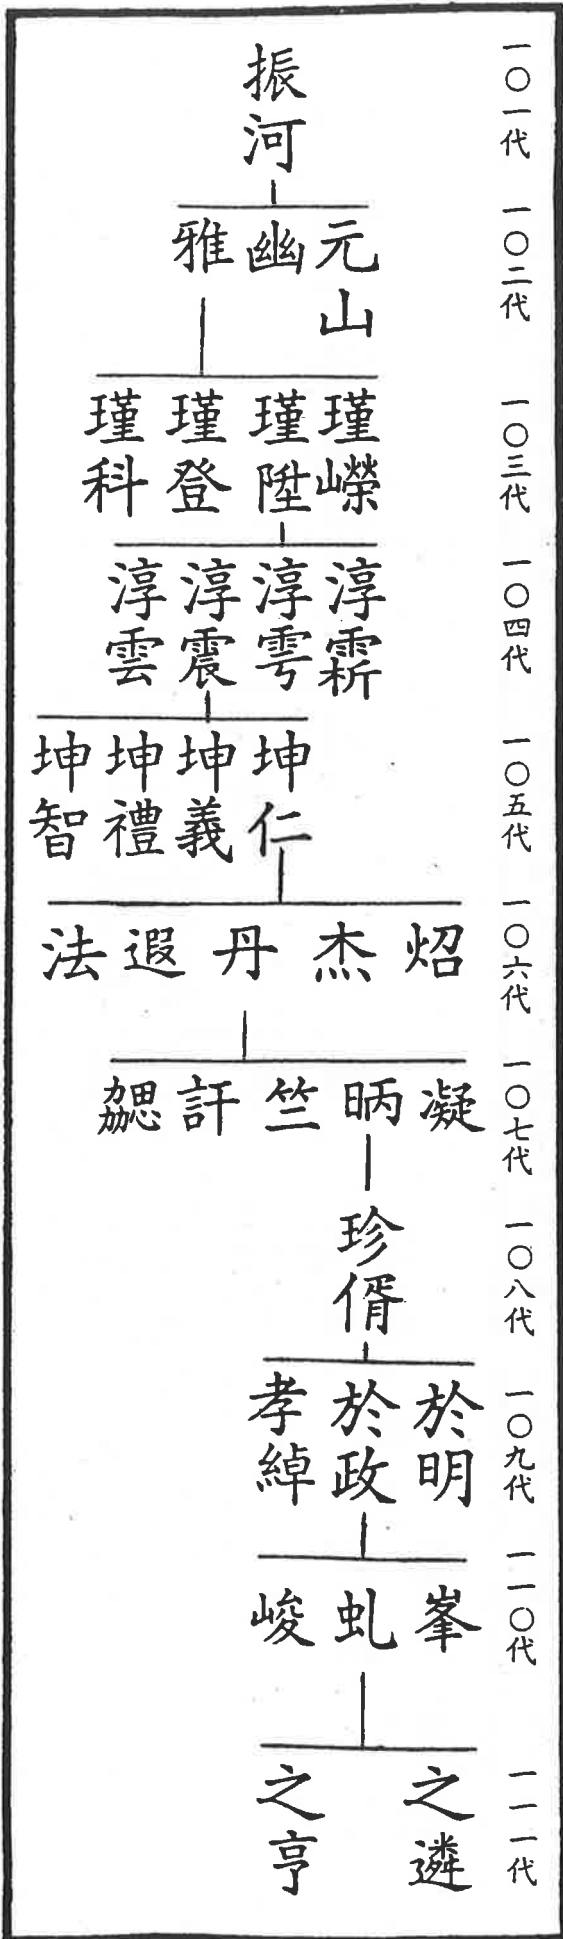 一〇一代
振河
一〇二代
元山
幽
雅
一〇三代
瑾嶸
瑾陞
瑾登
瑾科
一〇四代
淳霦
淳雩
淳震
淳雲
一〇五代
坤仁
坤義
坤禮
坤智
一〇六代
炤
杰
丹
遐
法
一〇七代
凝
昞
竺
訐
勰
一〇八代
珍偦
一〇九代
於明
於政
孝綽
一一〇代
峯
虬
峻
一一一代
之遴
之亨